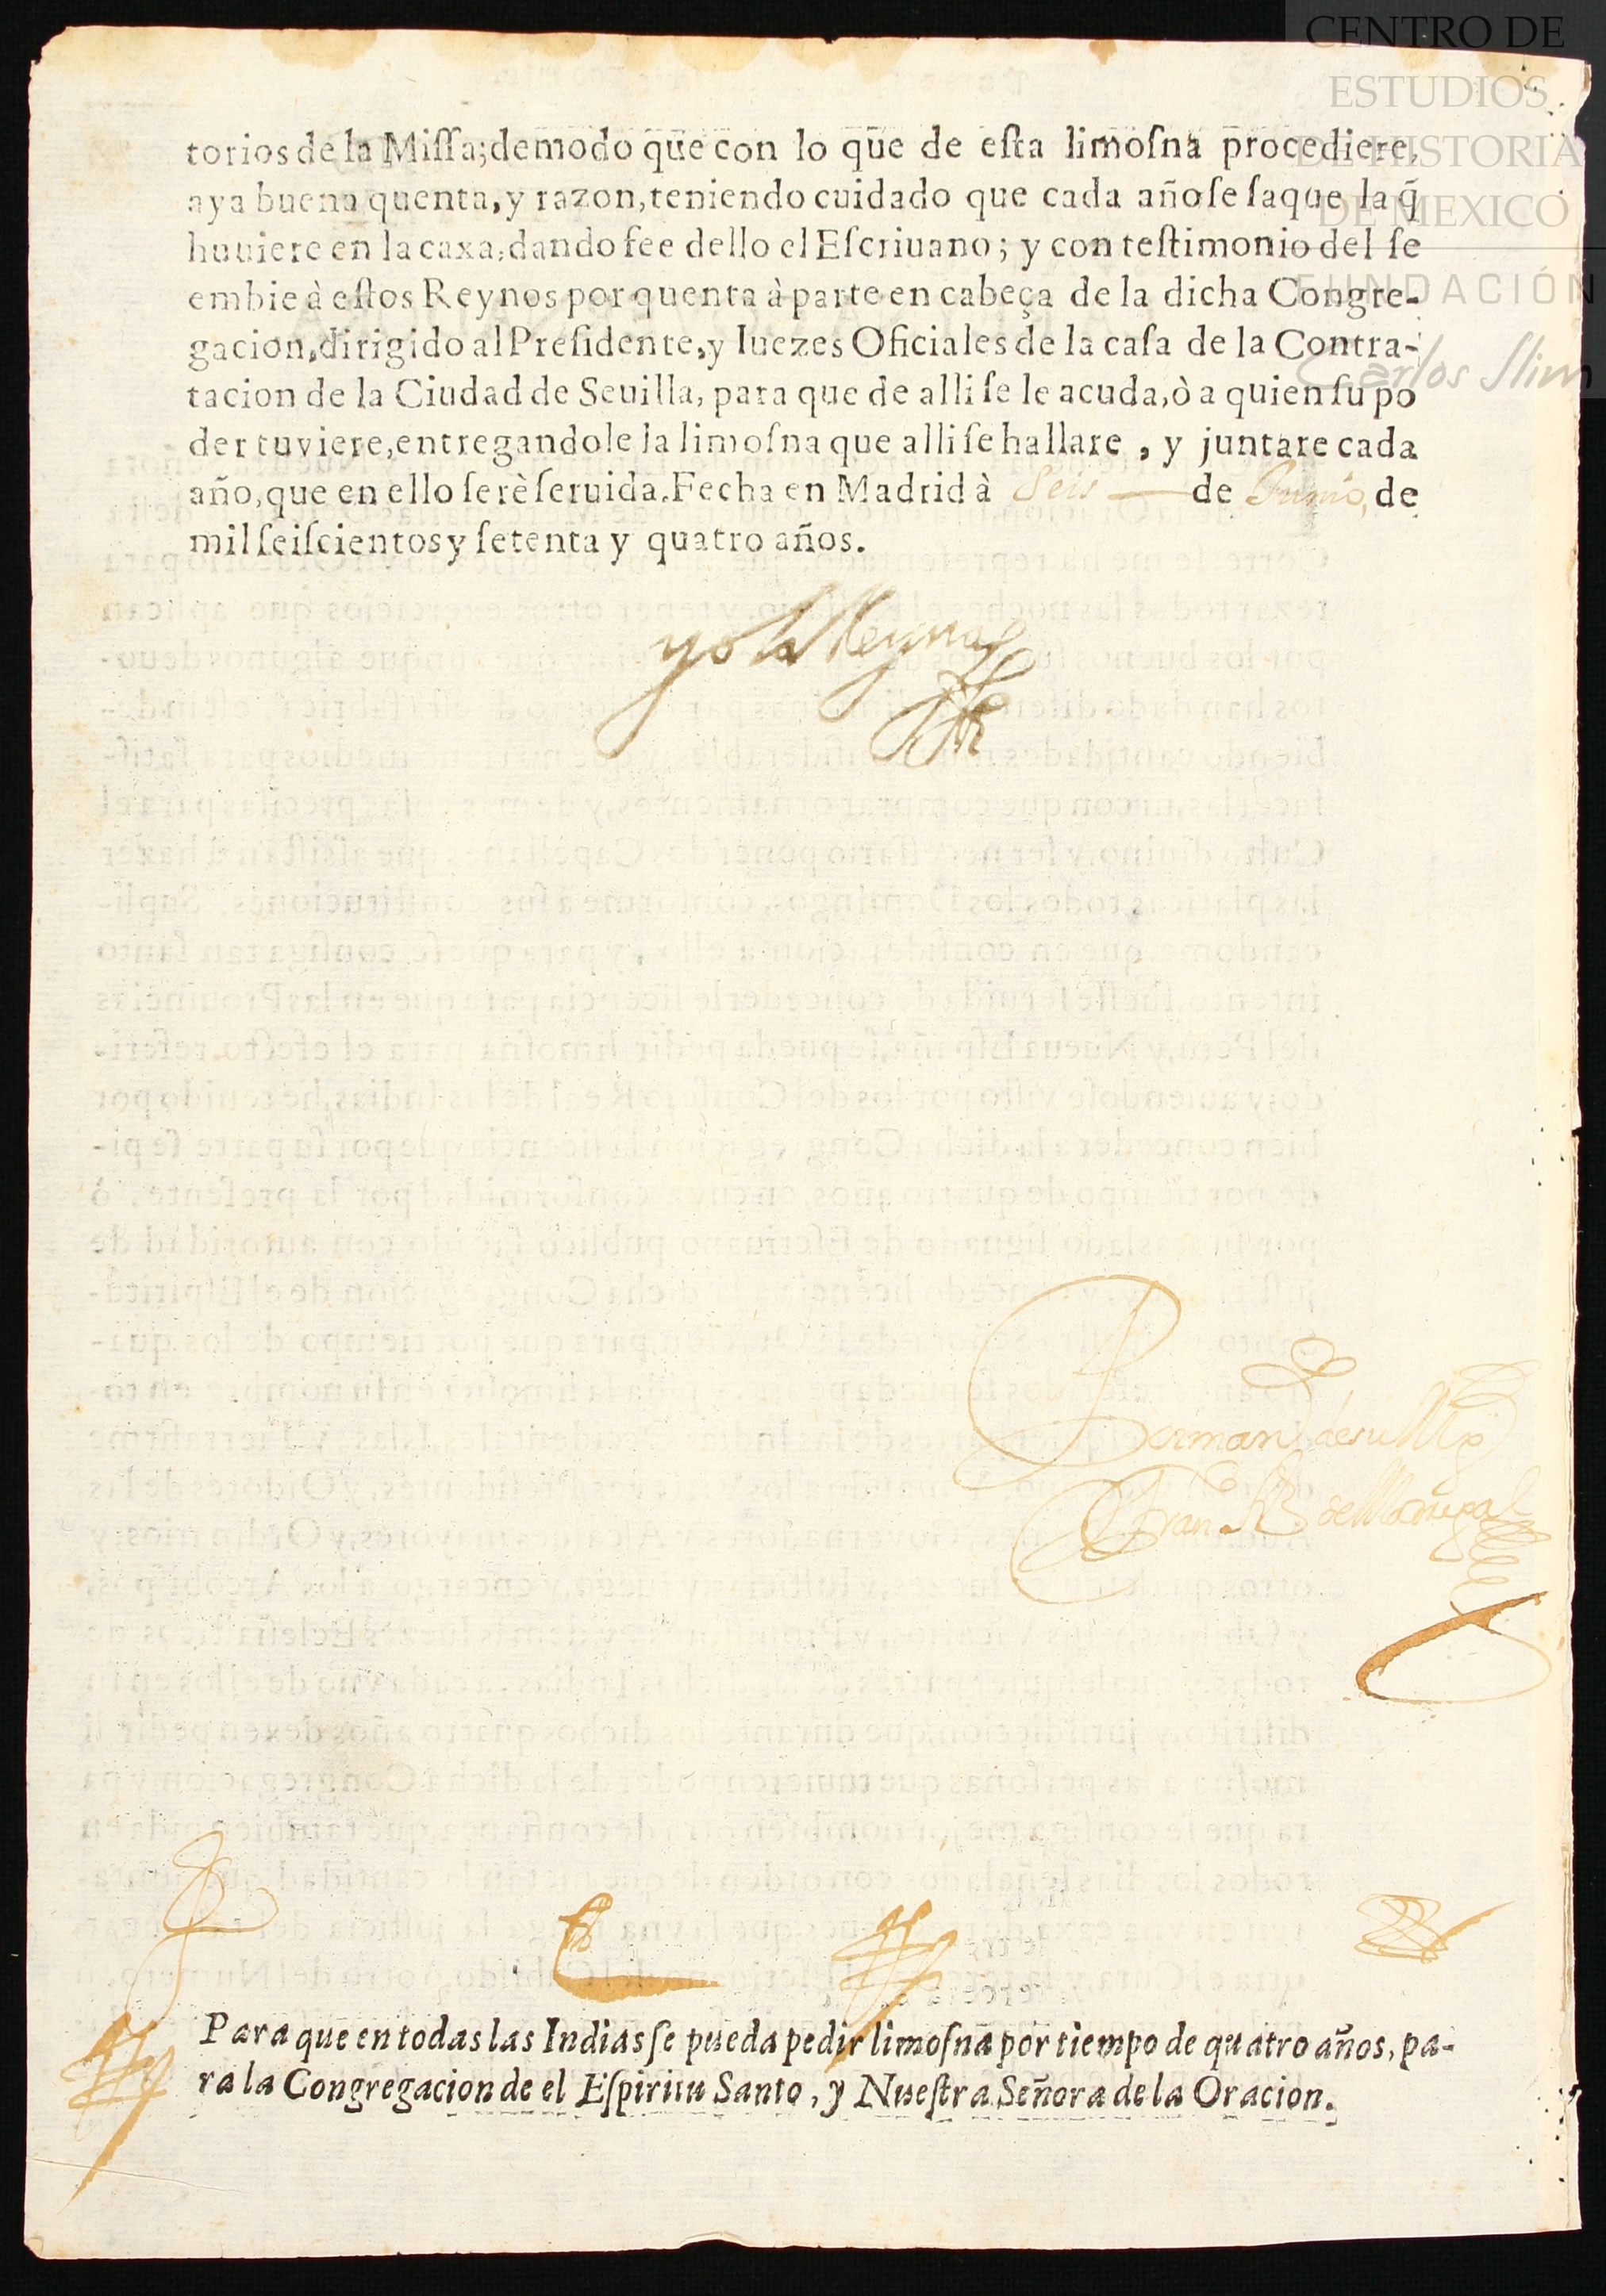 CENTRO DE
ESTUDIOS
DE HISTORIA
DE MEXICO
FUNDACIÓN
Carlos Slim
torios de la Miſſa; demodo que con lo que de eſta limoſna procediere,
aya buena quenta, y razon, teniendo cuidado que cada año ſe ſaque la q̃
huuiere en la caxa, dando fee dello el Eſcriuano; y con teſtimonio del ſe
embie à eſtos Reynos por quenta à parte en cabeça de la dicha Congre-
gacion, dirigido al Preſidente, y Iuezes Oficiales de la caſa de la Contra-
tacion de la Ciudad de Seuilla, para que de alli ſe le acuda, ò a quien ſu po
der tuviere, entregandole la limoſna que alli ſe hallare, y juntare cada
año, que en ello ſerè ſeruida. Fecha en Madrid à Seis de Junio, de
mil ſeiſcientos y ſetenta y quatro años.
yo la Reyna
Por man de su Mg
Fran de Madrigal
Para que en todas las Indias ſe pueda pedir limoſna por tiempo de quatro años, pa-
ra la Congregacion de el Eſpiritu Santo, y Nueſtra Señora de la Oracion.